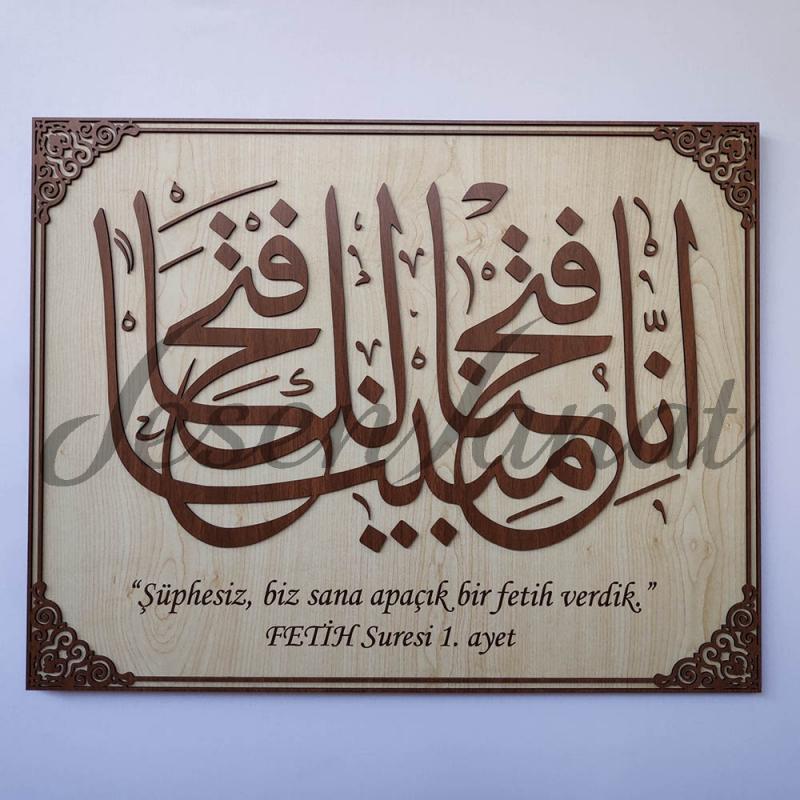 إِنَّا فَتَحْنَا لَكَ فَتْحًا مُبِينًا
“Şüphesiz, biz sana apaçık bir fetih verdik.”
FETİH Suresi 1. ayet
JesenSanat